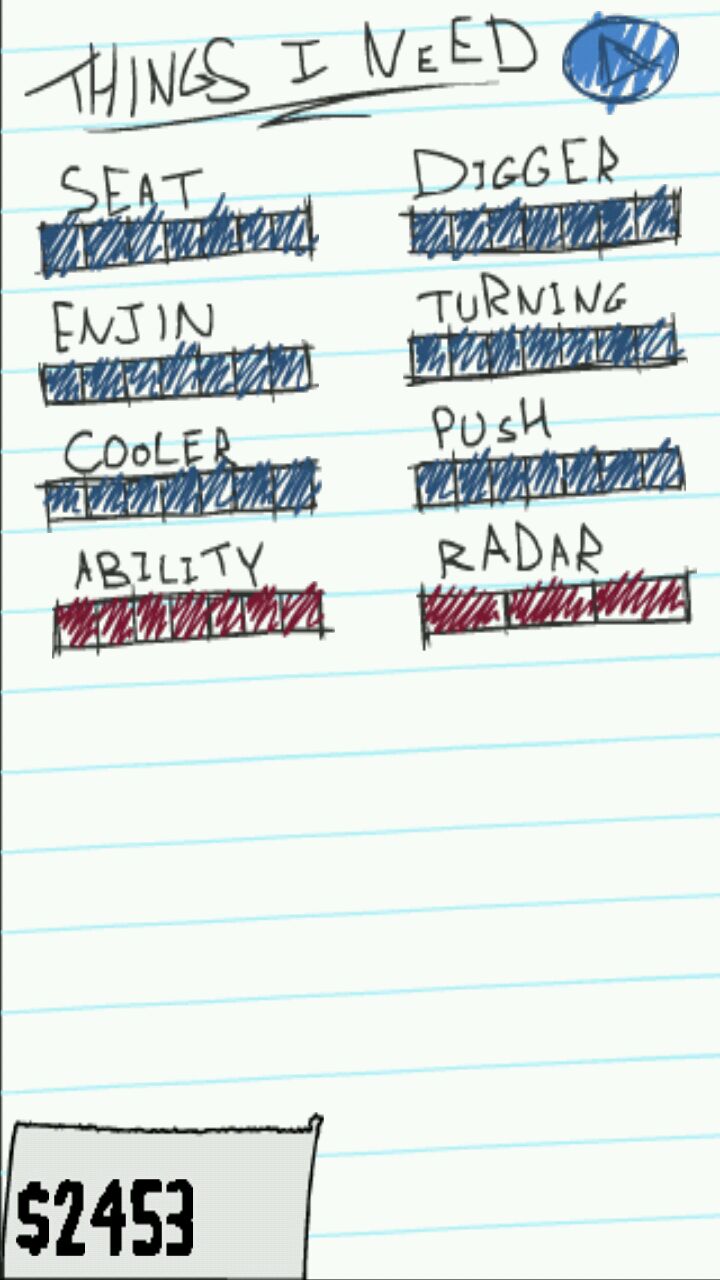 THINGS I NEED
SEAT
DIGGER
ENJIN
TURNING
COOLER
PUSH
ABILITY
RADAR
$2453